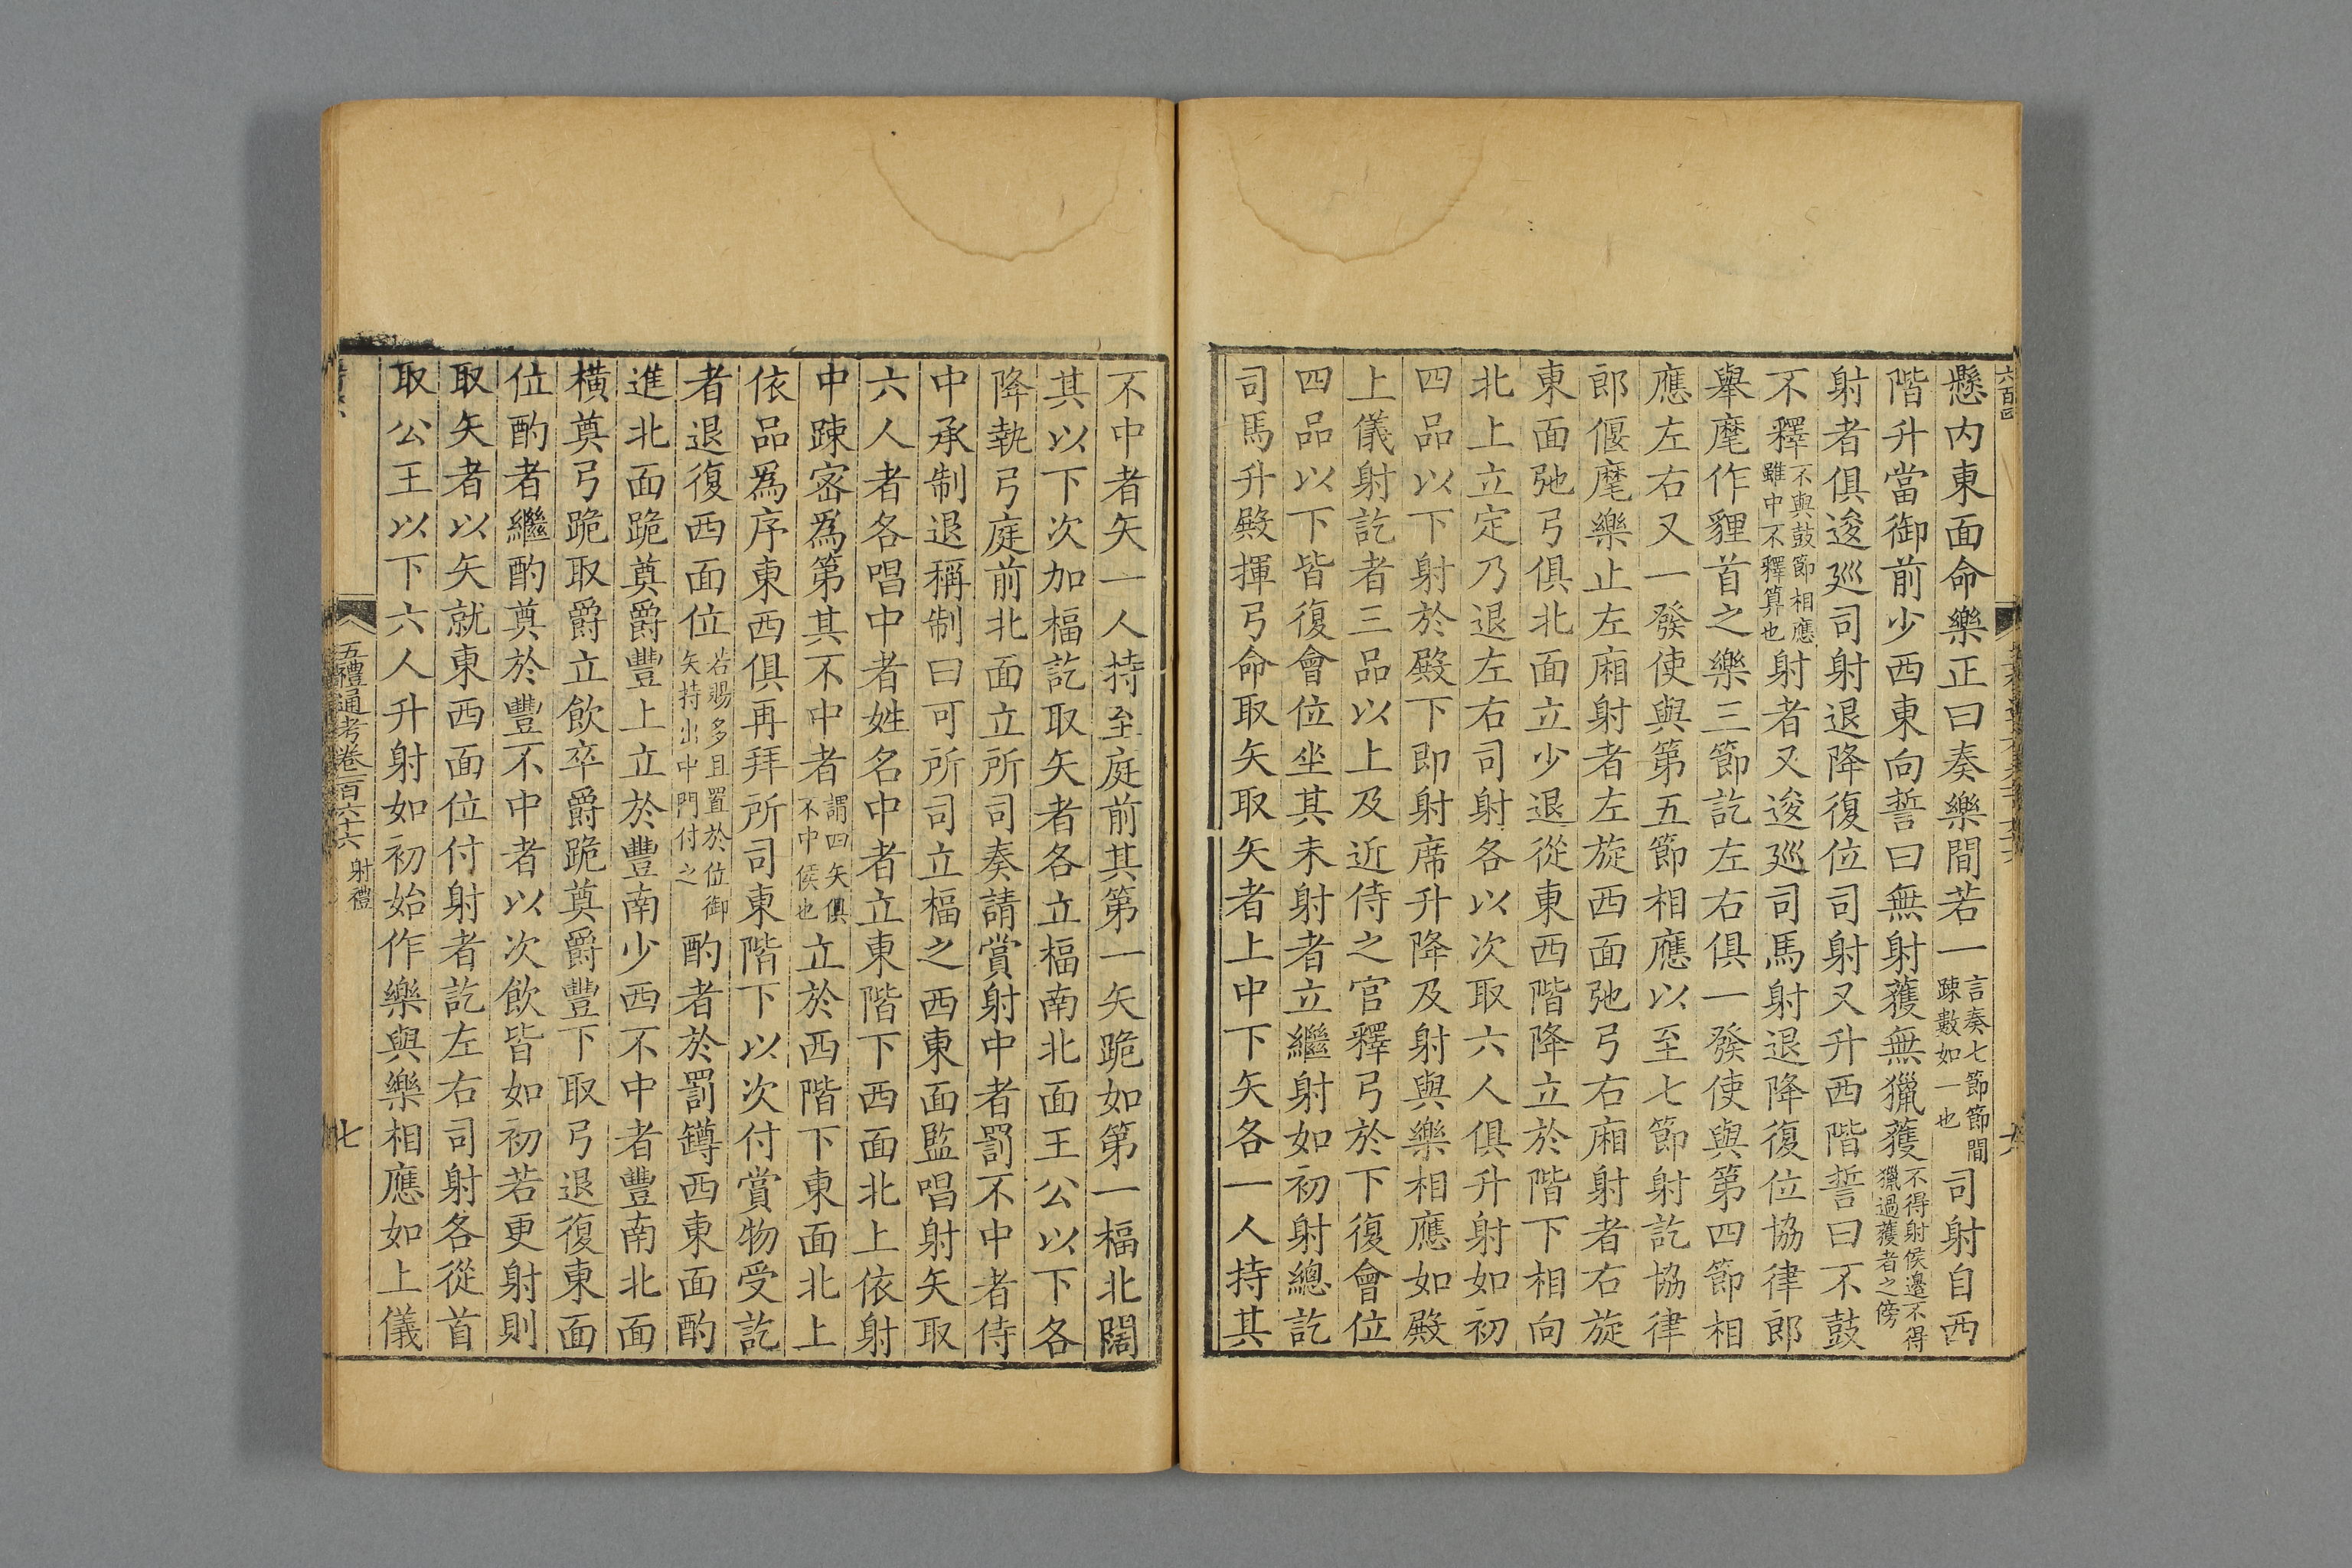 六百四
懸内東面命樂正曰奏樂間若一言奏七節節間疎數如一也司射自西
階升當御前少西東向誓曰無射蒦無獵蒦不得射侯邊不得獵過蒦者之傍
射者俱逡廵司射退降復位司射又升西階誓曰不鼓
不釋不與鼓節相應雖中不釋算也射者又逡廵司馬射退降復位協律郎
舉麾作貍首之樂三節訖左右俱一發使與第四節相
應左右又一發使與第五節相應以至七節射訖協律
郎偃麾樂止左廂射者左旋西面弛弓右廂射者右旋
東面弛弓俱北面立少退從東西階降立於階下相向
北上立定乃退左右司射各以次取六人俱升射如初
四品以下射於殿下即射席升降及射與樂相應如殿
上儀射訖者三品以上及近侍之官釋弓於下復會位
四品以下皆復會位坐其未射者立繼射如初射總訖
司馬升殿揮弓命取矢取矢者上中下矢各一人持其
不中者矢一人持至庭前其第一矢跪如第一楅北闊
其以下次加楅訖取矢者各立楅南北面王公以下各
降執弓庭前北面立所司奏請賞射中者罰不中者侍
中承制退稱制曰可所司立楅之西東面監唱射矢取
六人者各唱中者姓名中者立東階下西面北上依射
中踈宻爲第其不中者謂四矢俱不中侯也立於西階下東面北上
依品爲序東西俱再拜所司東階下以次付賞物受訖
者退復西面位若賜多且置於位御矢持出中門付之酌者於罰罇西東面酌
進北面跪奠爵豐上立於豐南少西不中者豐南北面
橫奠弓跪取爵立飲卒爵跪奠爵豐下取弓退復東面
位酌者繼酌奠於豐不中者以次飲皆如初若更射則
取矢者以矢就東西面位付射者訖左右司射各從首
取公王以下六人升射如初始作樂與樂相應如上儀
五禮通考卷一百六十六 射禮
七